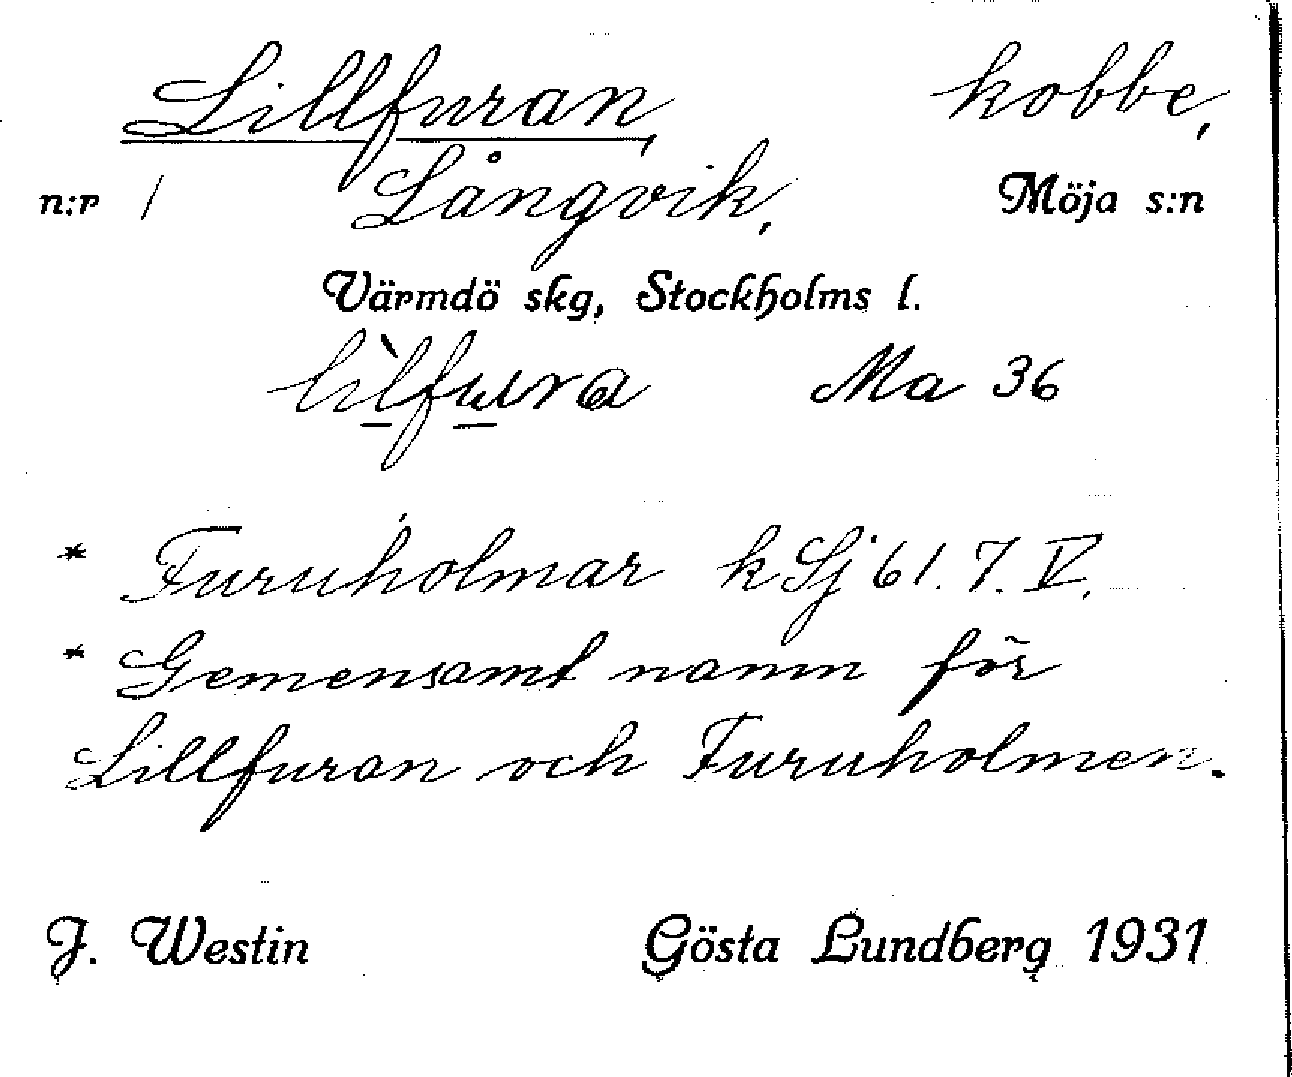 Lillfuran, kobbe,
n:r 1 Långvik, Möja s:n
Värmdö skg, Stockholms l.
lìlfura Ma 36
* Furuholmar k Sj 61. 7. V.
* Gemensamt namn för
Lillfuran och Furuholmen.
J. Westin Gösta Lundberg 1931